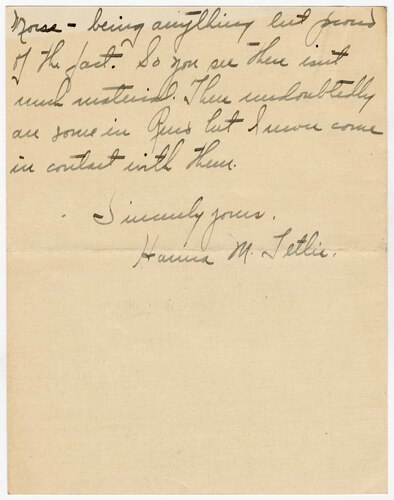 Norse - being anything but proud
of the fact. So you see there isn't
much material. There undoubtedly
are some in but I never come
in contact with them.
Sincerely yours.
Hanna M.